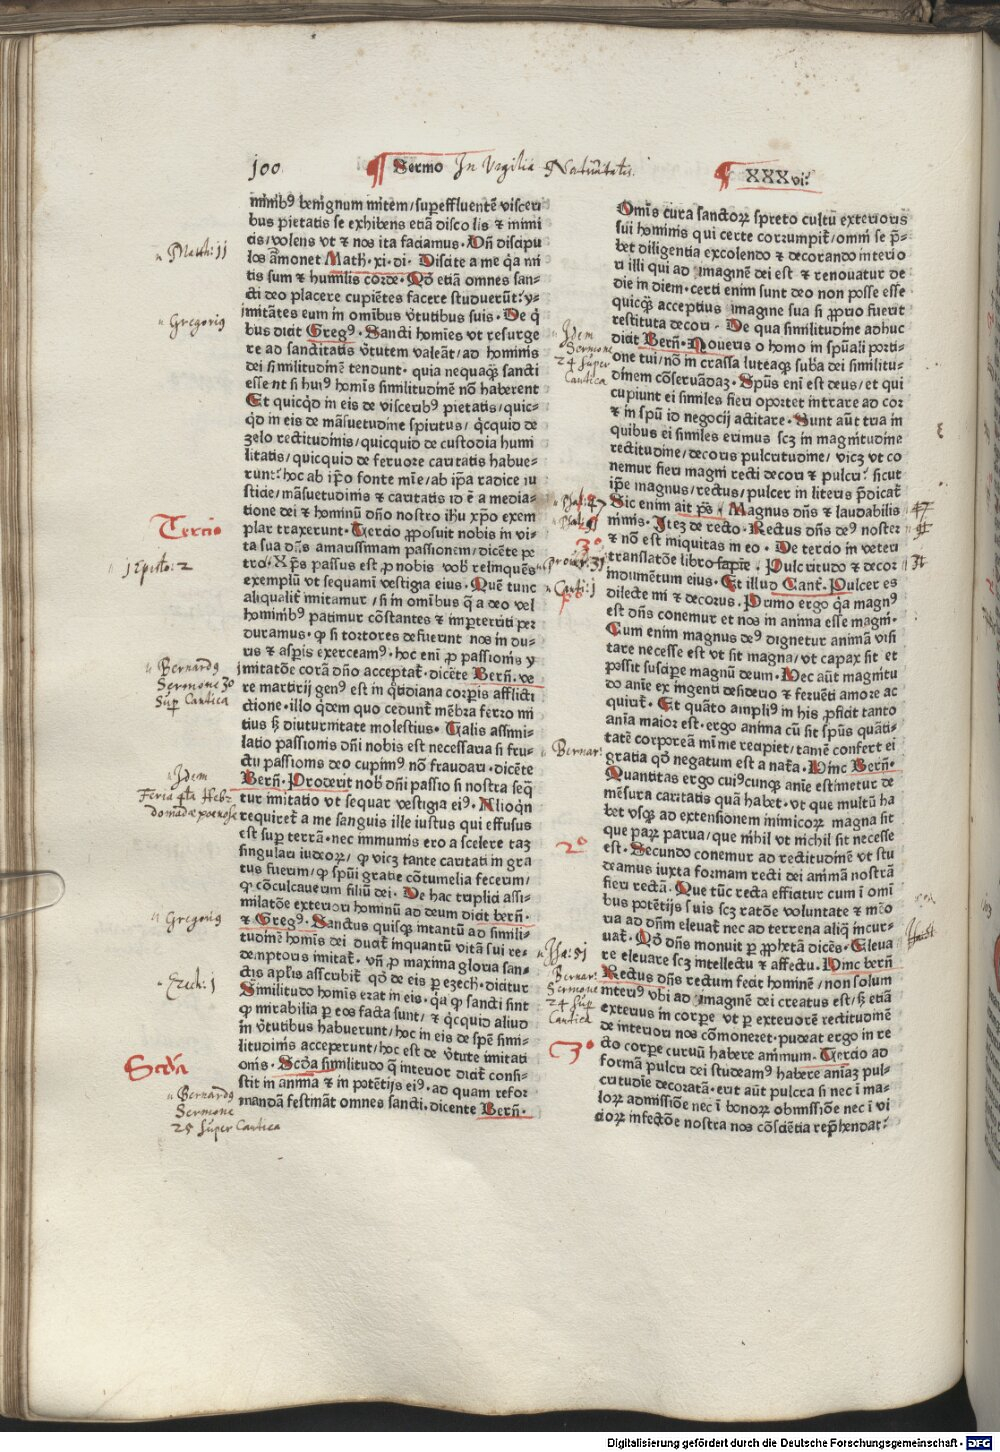 100
Sermo In Vigilia Natiuitatis.
XXXvi.
minibꝰ benignum mitem/suꝑeffluentē visceri
bus pietatis se exhibens etiā disco lis ⁊ inimi
cis/volens vt ⁊ nos ita faciamus. Vn̄ discipu
los āmonet Math. xi. di. Discite a me q̇a mi
tis sum ⁊ humilis corde. Qd̓ etiā omnes san-
cti deo placere cupiētes facere studuerūt: y-
imitātes eum in omibus v̓tutibus suis. De q̇
bus dicit Gregꝰ. Sancti homīes vt resurge
re ad sanctitatis v̓tutem valeāt/ad hominis
dei similitudinē tendunt. quia nequaqꝫ sancti
esse nt si huiꝰ homīs similitudinē nō haberent
Et quicqͥd in eis de visceribꝰ pietatis/quic-
qͥd in eis de māsuetudine spiritus/ qͥcquid de
zelo rectitudinis/quicquid de custodia humi
litatis/quicquid de feruore caritatis habue-
runt: hoc ab ip̄o fonte mīe/ab ip̄a radice iu
sticie/māsuetudinis ⁊ caritatis id ē a media-
tione dei ⁊ hominū dn̄o nostro ihū xp̄o exem
plar traxerunt. Tercio ꝓposuit nobis in vi-
ta sua dn̄s amarissimam passionem/dicēte pe
tro. Xp̄s passus est ꝓ nobis vob̓ relinquēs
exemplū vt sequami vestigia eius. Quē tunc
aliqualit̓ imitamur/si in omībus q̇ a deo vel
hominibꝰ patimur cōstantes ⁊ imꝑterriti per
duramus. ꝙ si tortores defuerint nos in du-
ris ⁊ asꝑis exerceamꝰ. hoc eni ꝓ passionis y
imitatōe corā dn̄o acceptat̓. dicēte Bern̄. ve
re martirij genꝰ est in qͦtidiana corꝑis afflicti
ctione. illo qͥdem quo cedunt̓ mēbra ferro mi
tius sꝫ diuturnitate molestius. Talis assimi-
latio passionis dn̄i nobis est necessaria si fru-
ctu passionis deo cupimꝰ nō fraudari. dicēte
Bern̄. Proderit nob̓ dn̄i passio si nostra seq̄
tur imitatio vt sequar vestigia eiꝰ. Alioqͥn
requiret̓ a me sanguis ille iustus qui effusus
est suꝑ terrā. nec immunis ero a scelere taꝫ
singulari iudeoꝝ/ ꝙ vicꝫ tante caritati in gra
tus fuerim/ ꝙ spūi gratie cōtumelia fecerim/
ꝙ cōculcauerim filiū dei. De hac triplici assi-
milatōe exteriori hominū ad deum dicit bern̄.
⁊ Gregꝰ. Sanctus quisqꝫ intantū ad simili-
tudinē homīs dei ducit̓ inquantū vitā sui re-
demptoris imitat̓. vn̄ ꝓ maxima gloria san-
ctis aplis asscribit̓ qd̓ de eis ꝑ ezech. dicitur
Similitudo homis erat in eis. q̇a ꝙ sancti sint
ꝙ mirabilia ꝑ eos facta sunt/ ⁊ qͥcquid aliud
in v̓tutibus habuerunt/hoc in eis de spē simi-
litudinis acceperunt/hoc est de v̓tute imitati
onis. Scd̓a similitudo q̄ interior dicit̓ consi-
stit in anima ⁊ in potētijs eiꝰ. ad quam refor
mandā festināt omnes sancti. dicente Bern̄.
Omīs cura sanctoꝝ spreto cultu exterioris
sui hominis qui certe corrumpit̓/ omni se p̄-
bet diligentia excolendo ⁊ decorando interio
ri illi qui ad ymaginē dei est ⁊ renouatur de
die in diem. certi enim sunt deo non posse esse
quicqꝫ acceptius imagine sua si ꝓprio fuerit
restituta decori. De qua similitudine adhuc
dicit Bern̄. Noueris o homo in spūali porti-
one tui/nō in crassa luteaqꝫ suba dei similitu-
dinem cōseruādaꝫ. Spūs eni est deus/et qui
cupiunt ei similes fieri oportet intrare ad cor
⁊ in spū id negocij actitare. Sunt aūt tria in
quibus ei similes erimus scꝫ in magnitudine
rectitudine/decoris pulcritudine/ vicꝫ vt co
nemur fieri magni recti decori ⁊ pulcri: sicut
ip̄e magnus/rectus/pulcer in literis p̄dicat̓
Sic enim ait ps̄. Magnus dn̄s ⁊ laudabilis
nimis. Iteꝫ de recto. Rectus dn̄s deꝰ noster
⁊ nō est iniquitas in eo. De tercio in veteri
translatōe libro sapīe. Pulcritudo ⁊ decor
indumētum eius. Et illud Cant̓. Pulcer es
dilecte mi ⁊ decorus. Primo ergo q̇a magnꝰ
est dn̄s conemur et nos in anima esse magni.
Cum enim magnus deꝰ dignetur animā visi
tare necesse est vt sit magna/ vt capax sit et
possit suscipe magnū deum. Hec aūt magnitu
do anīe ex ingenti desiderio ⁊ feruēti amore ac
quirit̓. Et quāto ampliꝰ in his ꝓficit tanto
anīa maior est. ergo anima cū sit spūs quāti-
tatē corpoream mīme recipiet/tamē confert ei
gratia qd̓ negatum est a nat̓a. Hinc Bern̄.
Quantitas ergo cuiꝰcunqꝫ anīe estimetur de
mēsura caritatis quā habet. vt que multū ha
bet vsqꝫ ad extensionem inimicoꝝ magna sit
que paꝝ parua/que nihil vt nichil sit necesse
est. Secundo conemur ad rectitudinē vt stu
deamus iuxta formam recti dei animā nostrā
fieri rectā. Que tūc recta efficiatur cum i omī
bus potētijs suis scꝫ ratōe voluntate ⁊ mēo
ria ad dn̄m eleuat̓ nec ad terrena aliqͥ incur-
uat̓. Qd̓ dn̄s monuit ꝑ ꝓphetā dicēs. Eleua
re eleuare scꝫ intellectu ⁊ affectu. Hinc bern̄
Rectus dn̄s rectum fecit hominē/non solum
interiꝰ vbi ad ymaginē dei creatus est/ sꝫ etiā
exterius in corpe vt ꝑ exteriorē rectitudinē
de interiori nos cōmoneret. pudeat ergo in re
cto corpe curuū habere animum. Tercio ad
formā pulcri dei studeamꝰ habere aniaꝫ pul-
critudīe decoratā. erit aūt pulcra si nec i ma-
loꝝ admissiōe nec i bonoꝝ obmissiōe nec i vi
cioꝝ infectōe nostra nos cōsciētia rep̄hendat:
Matth: 11
Gregorius
Tercio
1 Episto: 2
Bernardꝰ
Sermone 30
Sup̄ Cantica
Idem
Feria 4ta Heb:
domadæ poenosæ
Gregoriꝰ
Ezech: 1
Scd̓a
Bernardꝰ
Sermone
25 super Cantica
Idem
Sermone
24 super
Cantica
Psal: 47
3º
Prouer: 31
Canti: 1
Bernar:
2º
Isa: 51
Bernar:
Sermone
24 sup̄
Cantica
3º
47
91
31
Digitalisierung gefördert durch die Deutsche Forschungsgemeinschaft - DFG